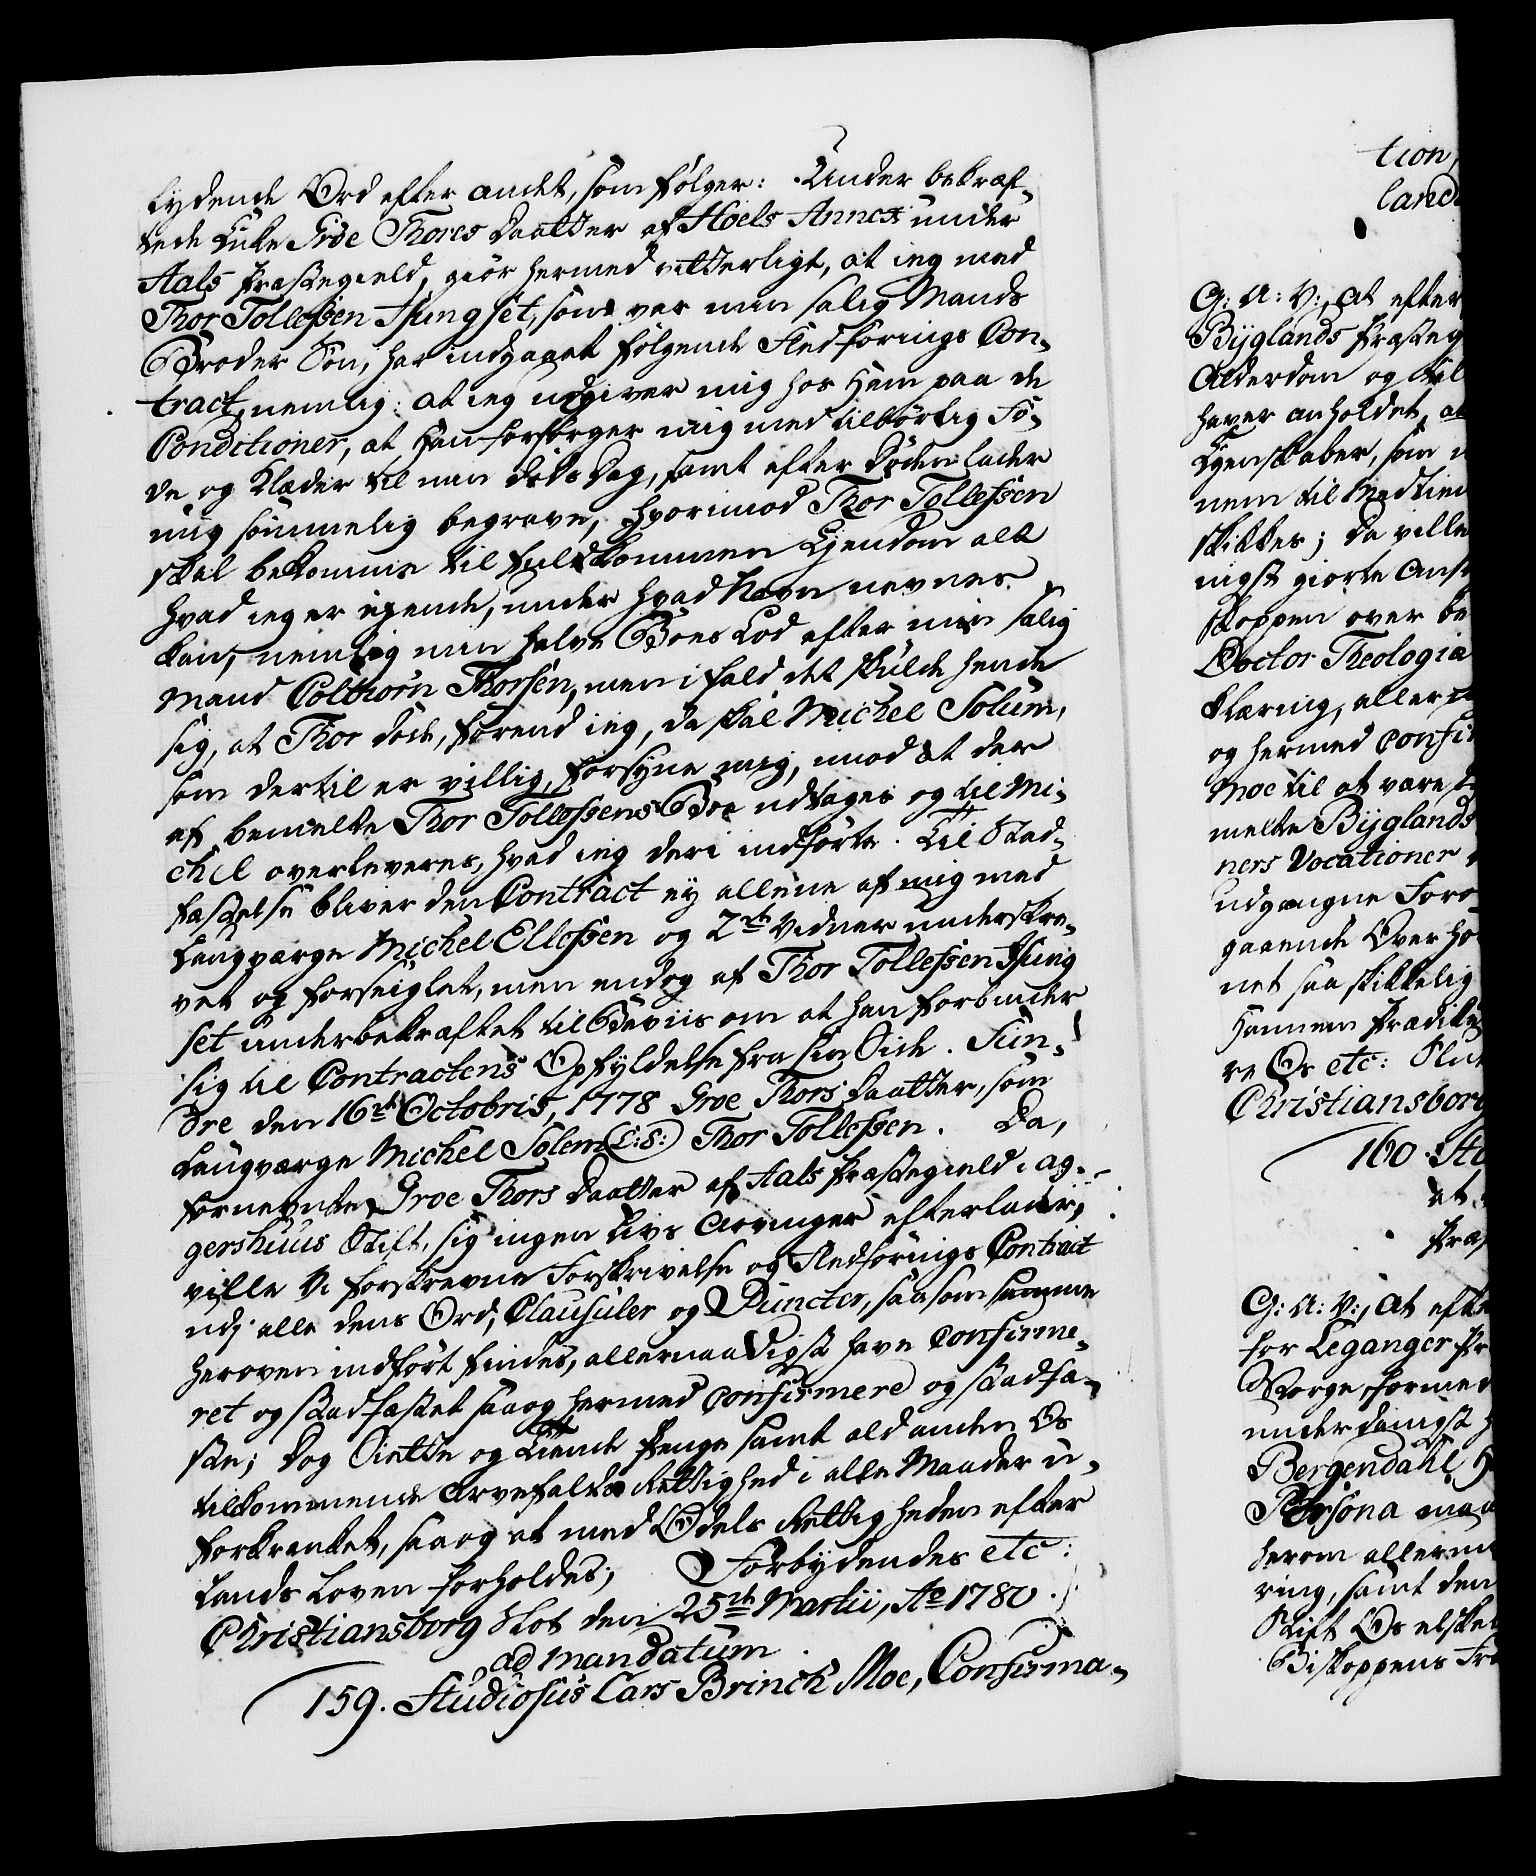 lydende Ord efter andet, som følger: Under bekræf-
tede Enke Groe Thores Daatter af Hoels Annex under
Aals Præstegield, giör hermed vitterligt, at ieg med
Thor Tollefsen Tfungset, som var min salig Mands
Broder Søn, har indgaaet følgende Fledførings Con-
tract, nemlig: at ieg udgiver mig hos Ham paa de
Conditioner, at Han forsørger mig med tilbörlig Fö-
de og Klæder til min Döds Dag, samt efter Döden lader
mig sömmelig begrave, hvorimod Thor Tollefsen
skal bekomme til fuldkommen Ejendom alt
hvad ieg er eyende, under hvad Navn nevnes
kan, nemlig min halve Boes Lod efter min salig
Mand Colbiörn Thorsen, men i fald det skulde hende
sig, at Thor döde, førend ieg, da skal Michel Solum,
som dertil er villig, forsyne mig, imod at der
af bemelte Thor Tollefsens Boe udtages og til Mi-
chel overleveres, hvad ieg deri indförte. Til Stad-
fæstelse bliver den Contract ey allene af mig med
Laugværge Michel Ellefsen og 2de Vidner underskre-
vet og forseiglet, men endog af Thor Tollefsen Tfung
set underbekræftet til Beviis om at han forbinder
sig til Contractens Opfyldelse fra sin Side. Sun-
dre den 16de Octobris, 1778 Groe Thors Daatter, som
Laugværge Michel Solem (L:S:) Thor Tollefsen. Da,
fornevnte Groe Thors Daatter af Aals Præstegield i Ag-
gershuus Stift, sig ingen Livs Arvinger efterlader,
ville Vi forskrevne Forskrivelse og Fledförings Contract
udj alle dens Ord, Clausuler og Puncter, saasom samme
heroven indfört findes, allernaadigst have confirme-
ret og stadfæstet saa og hermed confirmere og stadfæ-
ste; Dog Siette og Tiende Penge samt ald anden Os
tilkommende Arvefalds Rettighed i alle Maader u-
forkrænket, saa og at med Odels Rettigheden efter
Lands Loven forholdes; Forbydendes etc:
Christiansborg Slot den 25de Martii, Ao 1780.
ad mandatum
159. Studiosus Lars Brinch Moe, Confirma-
tion,
land
G: A: V:, at efter
Bÿglands Præsteg
Alderdom og
haver anholdet, at
Egenskaber, som
nem til Medtien
skikkes; Da ville
nigst giorte Ans
skoppen over be
Doctor Theologiæ
klæring, aller
og hermed confir
Moe til at være
melte Bÿglands
ners Vocationer
udgangne Foro
gaaende Over Ho
net saa skikkelig
Hannem Prædike
re Os etc: Slut
Christiansborg
160.
at
Præs
G: A: V:, at efte
for Leganger Pr
Norge, formed
underdanigst
Bergendahl
Persona maa
herom allerun
ring, samt den
Stift Os elskel
Biskoppens Fr